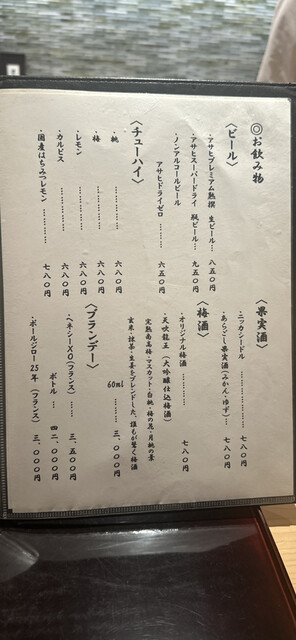 ◎お飲み物
〈ビール〉
・アサヒプレミアム熟撰 生ビール… 八五〇円
・アサヒスーパードライ 瓶ビール… 九五〇円
・ノンアルコールビール
アサヒドライゼロ ……… 六五〇円
〈チューハイ〉
・桃 ………… 六八〇円
・梅 ………… 六八〇円
・レモン ………… 六八〇円
・カルピス ………… 六八〇円
・国産はちみつレモン ………… 七八〇円
〈果実酒〉
・ニッカシードル ……… 七八〇円
・あらごし果実酒(みかん・ゆず)… 七八〇円
〈梅酒〉
・オリジナル梅酒 ……… 七八〇円
・天吹龍王(大吟醸仕込梅酒)
完熟南高梅・マスカット・白桃・梅の花・月桃の葉
玄米・抹茶・生姜をブレンドした、誰もが驚く梅酒
60ml … 三、〇〇〇円
〈ブランデー〉
・ヘネシーXO(フランス)… 三、五〇〇円
ボトル … 四二、〇〇〇円
・ポールジロー25年(フランス) 三、〇〇〇円